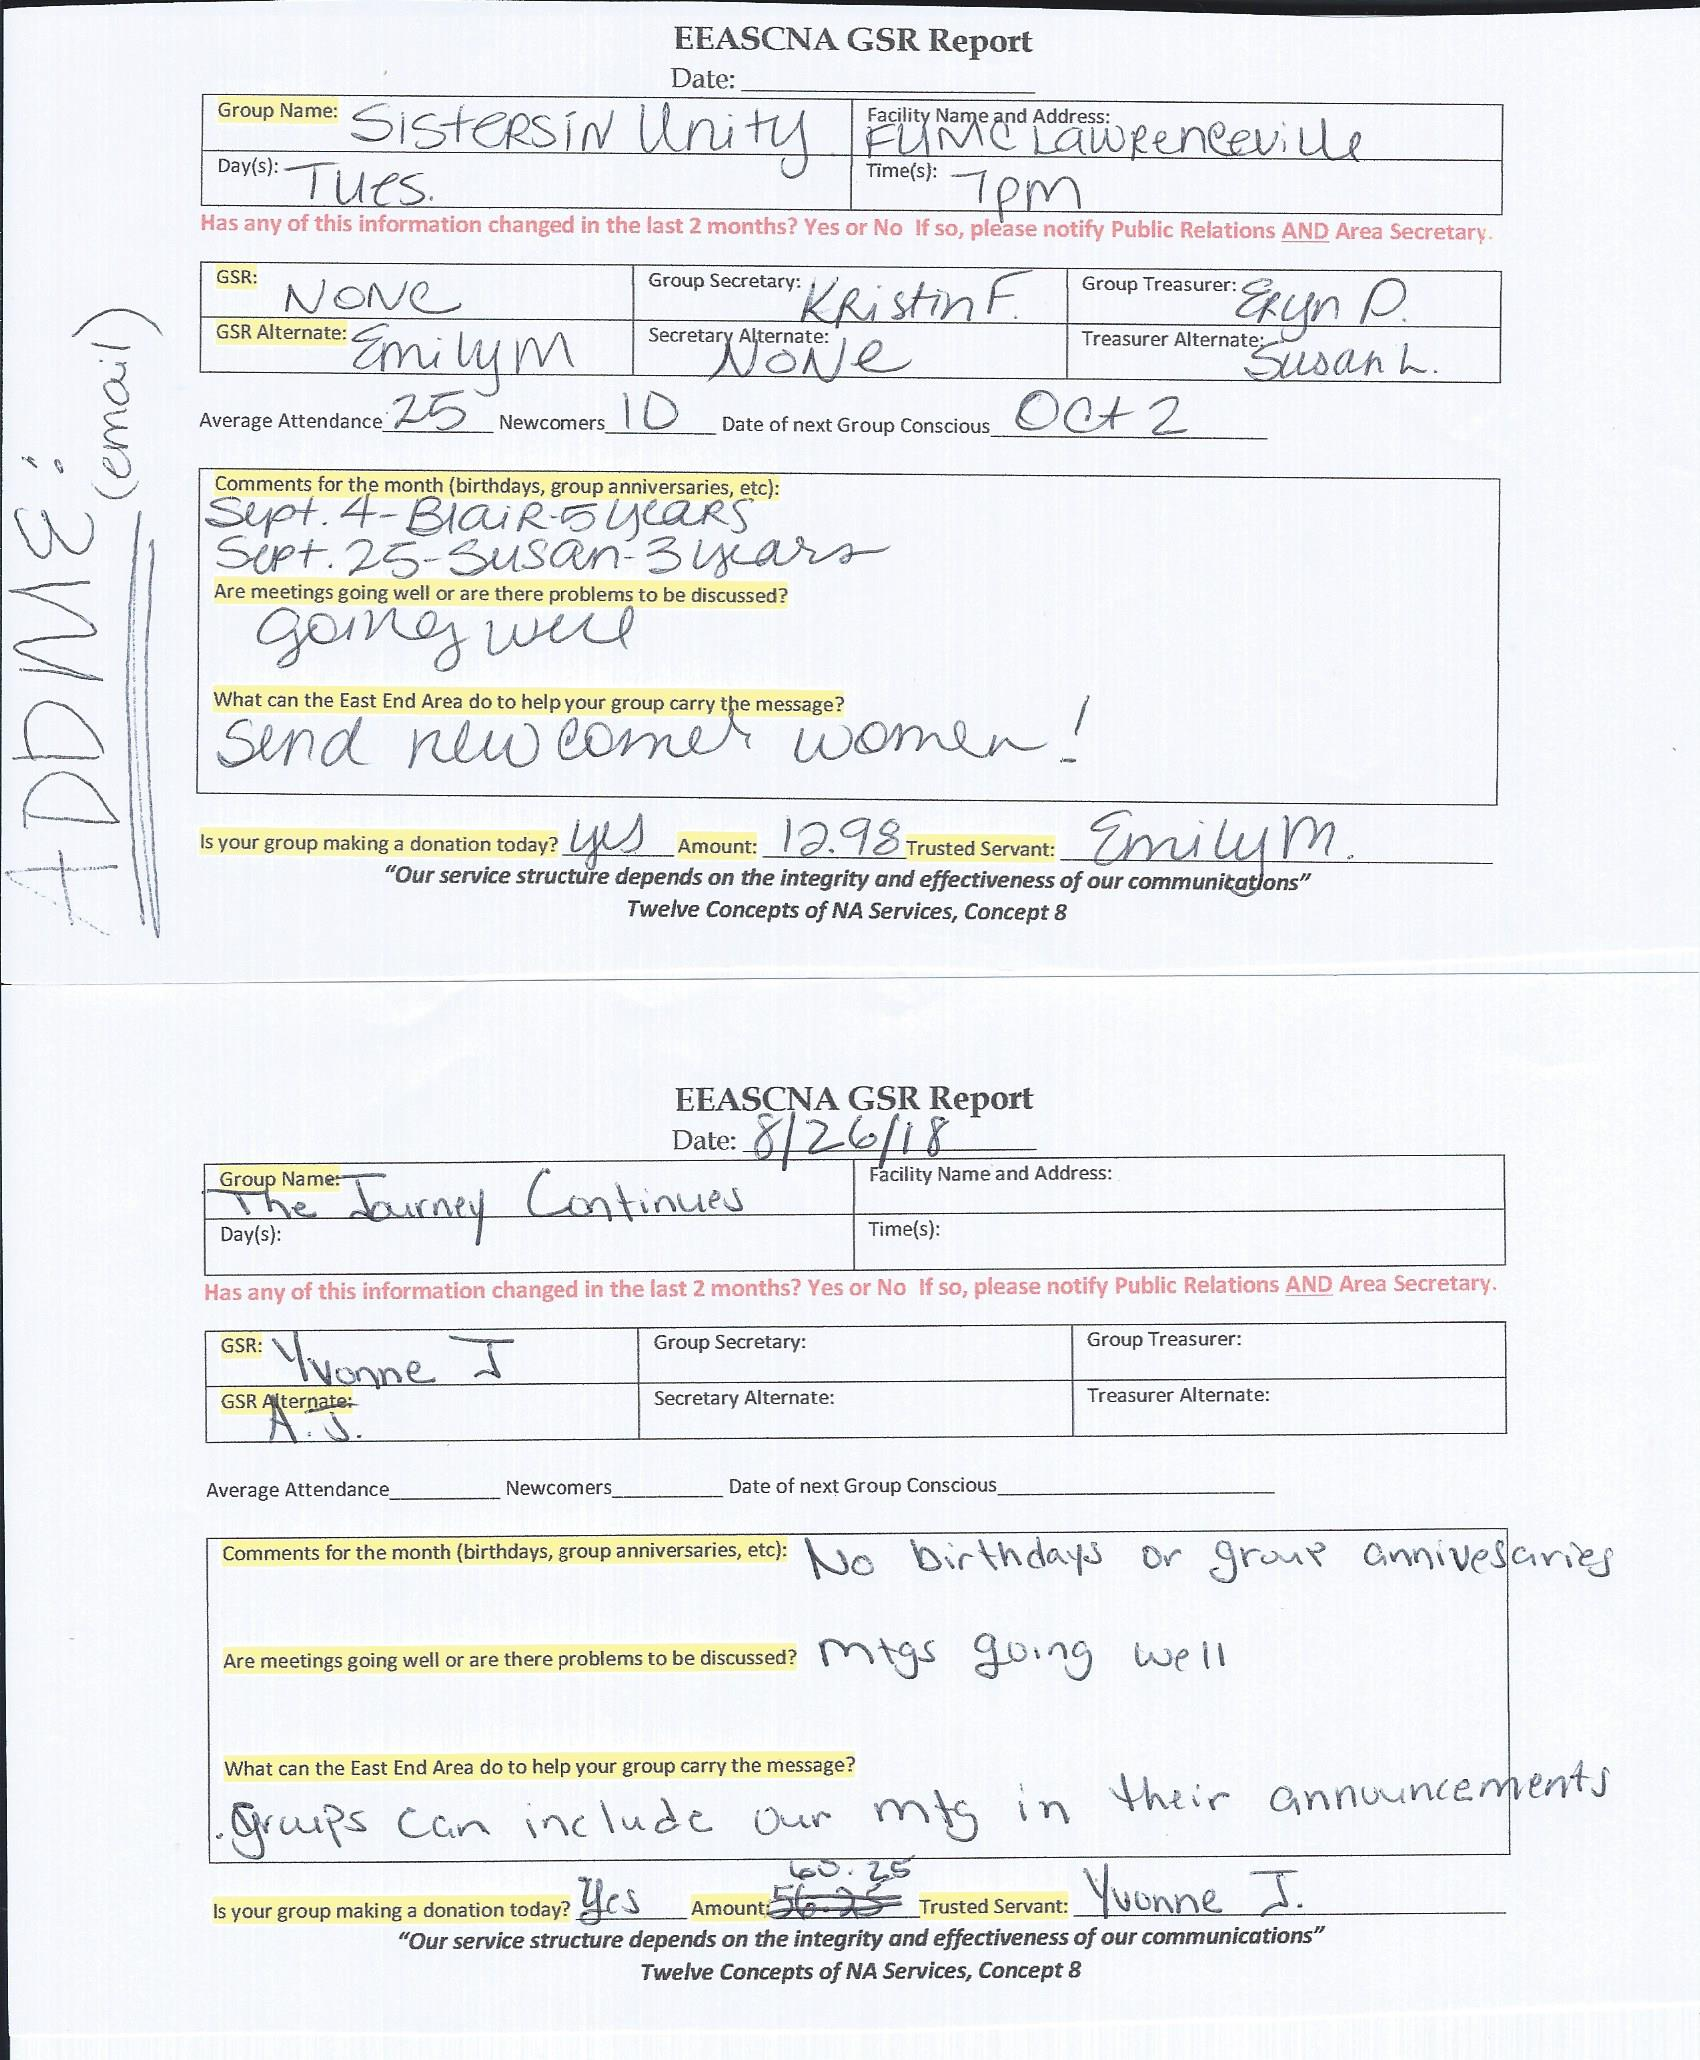 EEASCNA GSR Report
Date:
Group Name: SisteRs iN Unity
Facility Name and Address: FUMC Lawrenceville
Day(s): Tues.
Time(s): 7pm
Has any of this information changed in the last 2 months? Yes or No If so, please notify Public Relations AND Area Secretary.
GSR: NONe
Group Secretary: KRistin F.
Group Treasurer: ERyn D.
GSR Alternate: Emily M
Secretary Alternate: NoNe
Treasurer Alternate: Susan L.
Average Attendance 25 Newcomers 10 Date of next Group Conscious Oct 2
Comments for the month (birthdays, group anniversaries, etc):
Sept. 4 - BlaiR - 5 yeaRs
Sept. 25 - Susan - 3 years
Are meetings going well or are there problems to be discussed?
going well
What can the East End Area do to help your group carry the message?
Send newcomer women!
Is your group making a donation today? yes Amount: 12.98 Trusted Servant: Emily M.
"Our service structure depends on the integrity and effectiveness of our communications"
Twelve Concepts of NA Services, Concept 8
ADD ME:
(email)
EEASCNA GSR Report
Date: 8/26/18
Group Name: The Journey Continues
Facility Name and Address:
Day(s):
Time(s):
Has any of this information changed in the last 2 months? Yes or No If so, please notify Public Relations AND Area Secretary.
GSR: Yvonne J
Group Secretary:
Group Treasurer:
GSR Alternate: A.J.
Secretary Alternate:
Treasurer Alternate:
Average Attendance Newcomers Date of next Group Conscious
Comments for the month (birthdays, group anniversaries, etc): No birthdays or group annivesaries
Are meetings going well or are there problems to be discussed? mtgs going well
What can the East End Area do to help your group carry the message?
. groups can include our mtg in their announcements
60.25
Is your group making a donation today? Yes Amount: 56.25 Trusted Servant: Yvonne J.
"Our service structure depends on the integrity and effectiveness of our communications"
Twelve Concepts of NA Services, Concept 8